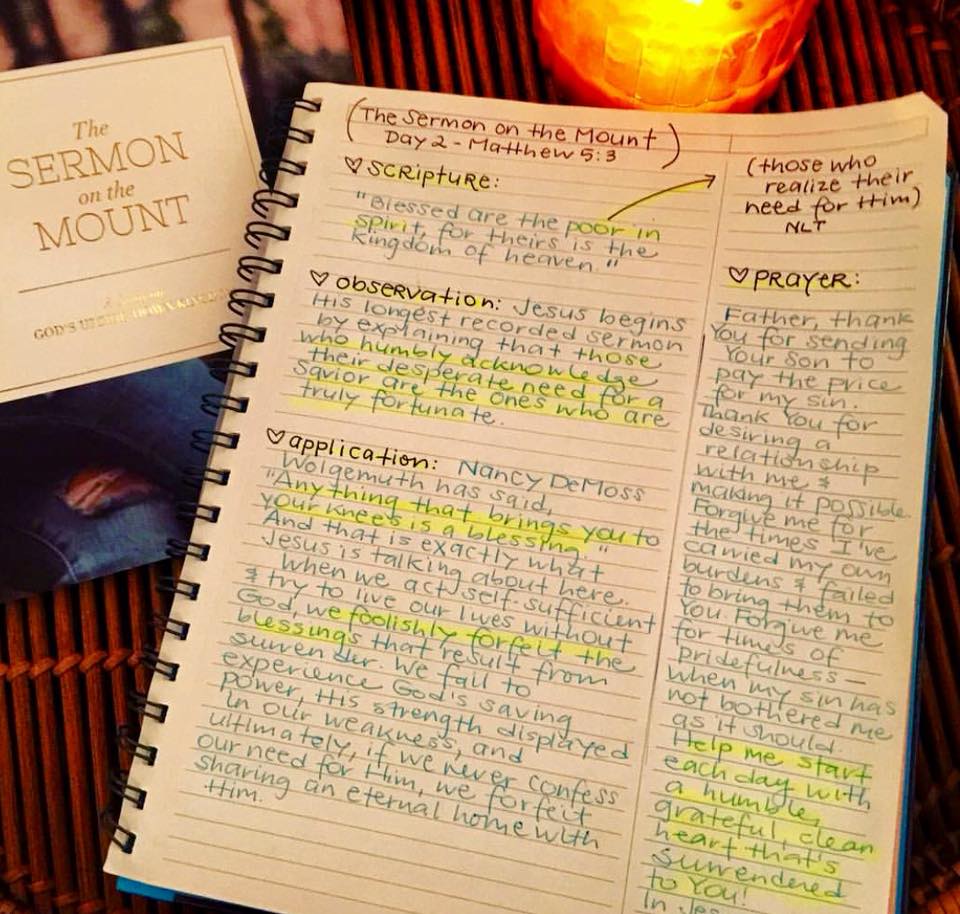 The
SERMON
on the
MOUNT
GOD'S UPSIDE-DOWN KINGDOM
(The Sermon on the Mount
Day 2 - Matthew 5:3)
♡ SCRIPTURE:
"Blessed are the poor in
spirit, for theirs is the
Kingdom of heaven."
♡ observation: Jesus begins
His longest recorded sermon
by explaining that those
who humbly acknowledge
their desperate need for a
Savior are the ones who are
truly fortunate.
♡ application: Nancy DeMoss
Wolgemuth has said,
"Anything that brings you to
your knees is a blessing."
And that is exactly what
Jesus is talking about here.
When we act self-sufficient
& try to live our lives without
God, we foolishly forfeit the
blessings that result from
surrender. We fail to
experience God's saving
power, His strength displayed
in our weakness, and
ultimately, if we never confess
our need for Him, we forfeit
sharing an eternal home with
Him.
(those who
realize their
need for Him)
NLT
♡ PRAYER:
Father, thank
You for sending
Your Son to
pay the price
for my sin.
Thank You for
desiring a
relationship
with me &
making it possible.
Forgive me for
the times I've
carried my own
burdens & failed
to bring them to
You. Forgive me
for times of
pridefulness—
when my sin has
not bothered me
as it should.
Help me start
each day with
a humble,
grateful, clean
heart that's
surrendered
to You!
In Jes